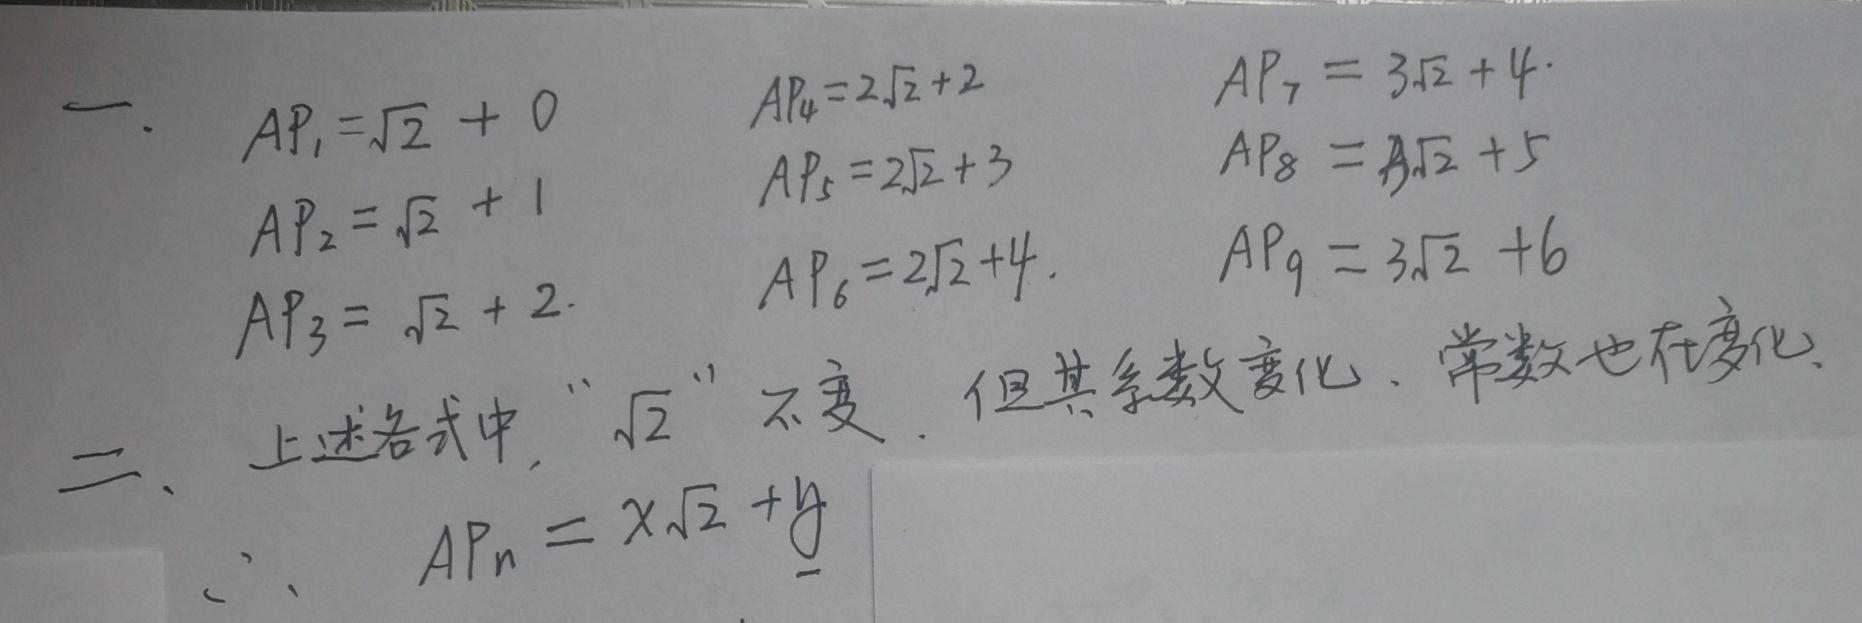 一. AP₁=√2 + 0 AP₄=2√2+2 AP₇ = 3√2+4.
AP₂=√2 + 1 AP₅=2√2+3 AP₈ = 3√2+5
AP₃= √2 + 2. AP₆=2√2+4. AP₉ = 3√2 +6
二、上述各式中, “√2” 不变. 但其系数变化、常数也在变化、
∴ APn = x√2 +y